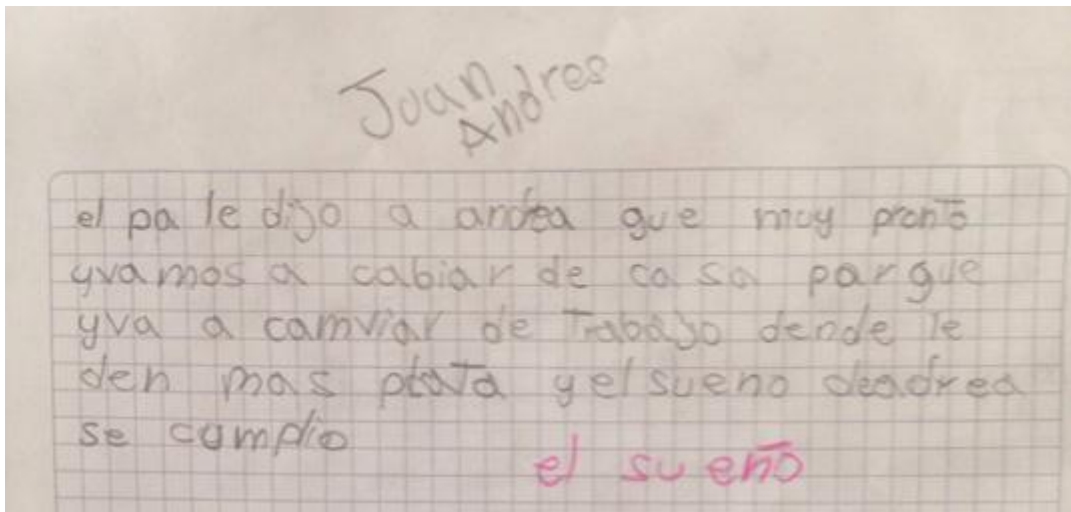 Juan
Andres
el pa le dijo a andea que muy pronto
yvamos a cabiar de casa parque
yva a camviar de trabajo dende le
den mas plata y el sueno deadrea
se cumplio
el sueño